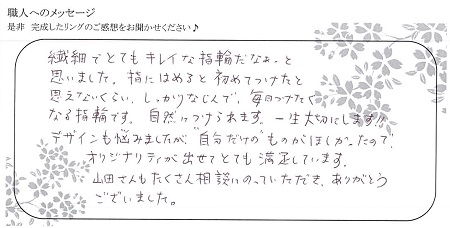 職人へのメッセージ
是非 完成したリングのご感想をお聞かせください♪
繊細でとてもキレイな指輪だなぁ－と
思いました。指にはめると初めてつけたと
思えないくらい、しっかりなじんで、毎日つけたく
なる指輪です。自然につけられます。一生大切にします!!
デザインも悩みましたが"自分だけの"ものがほしかったので
オリジナリティが出せてとても満足しています。
山田さんもたくさん相談にのっていただき、ありがとう
ございました。